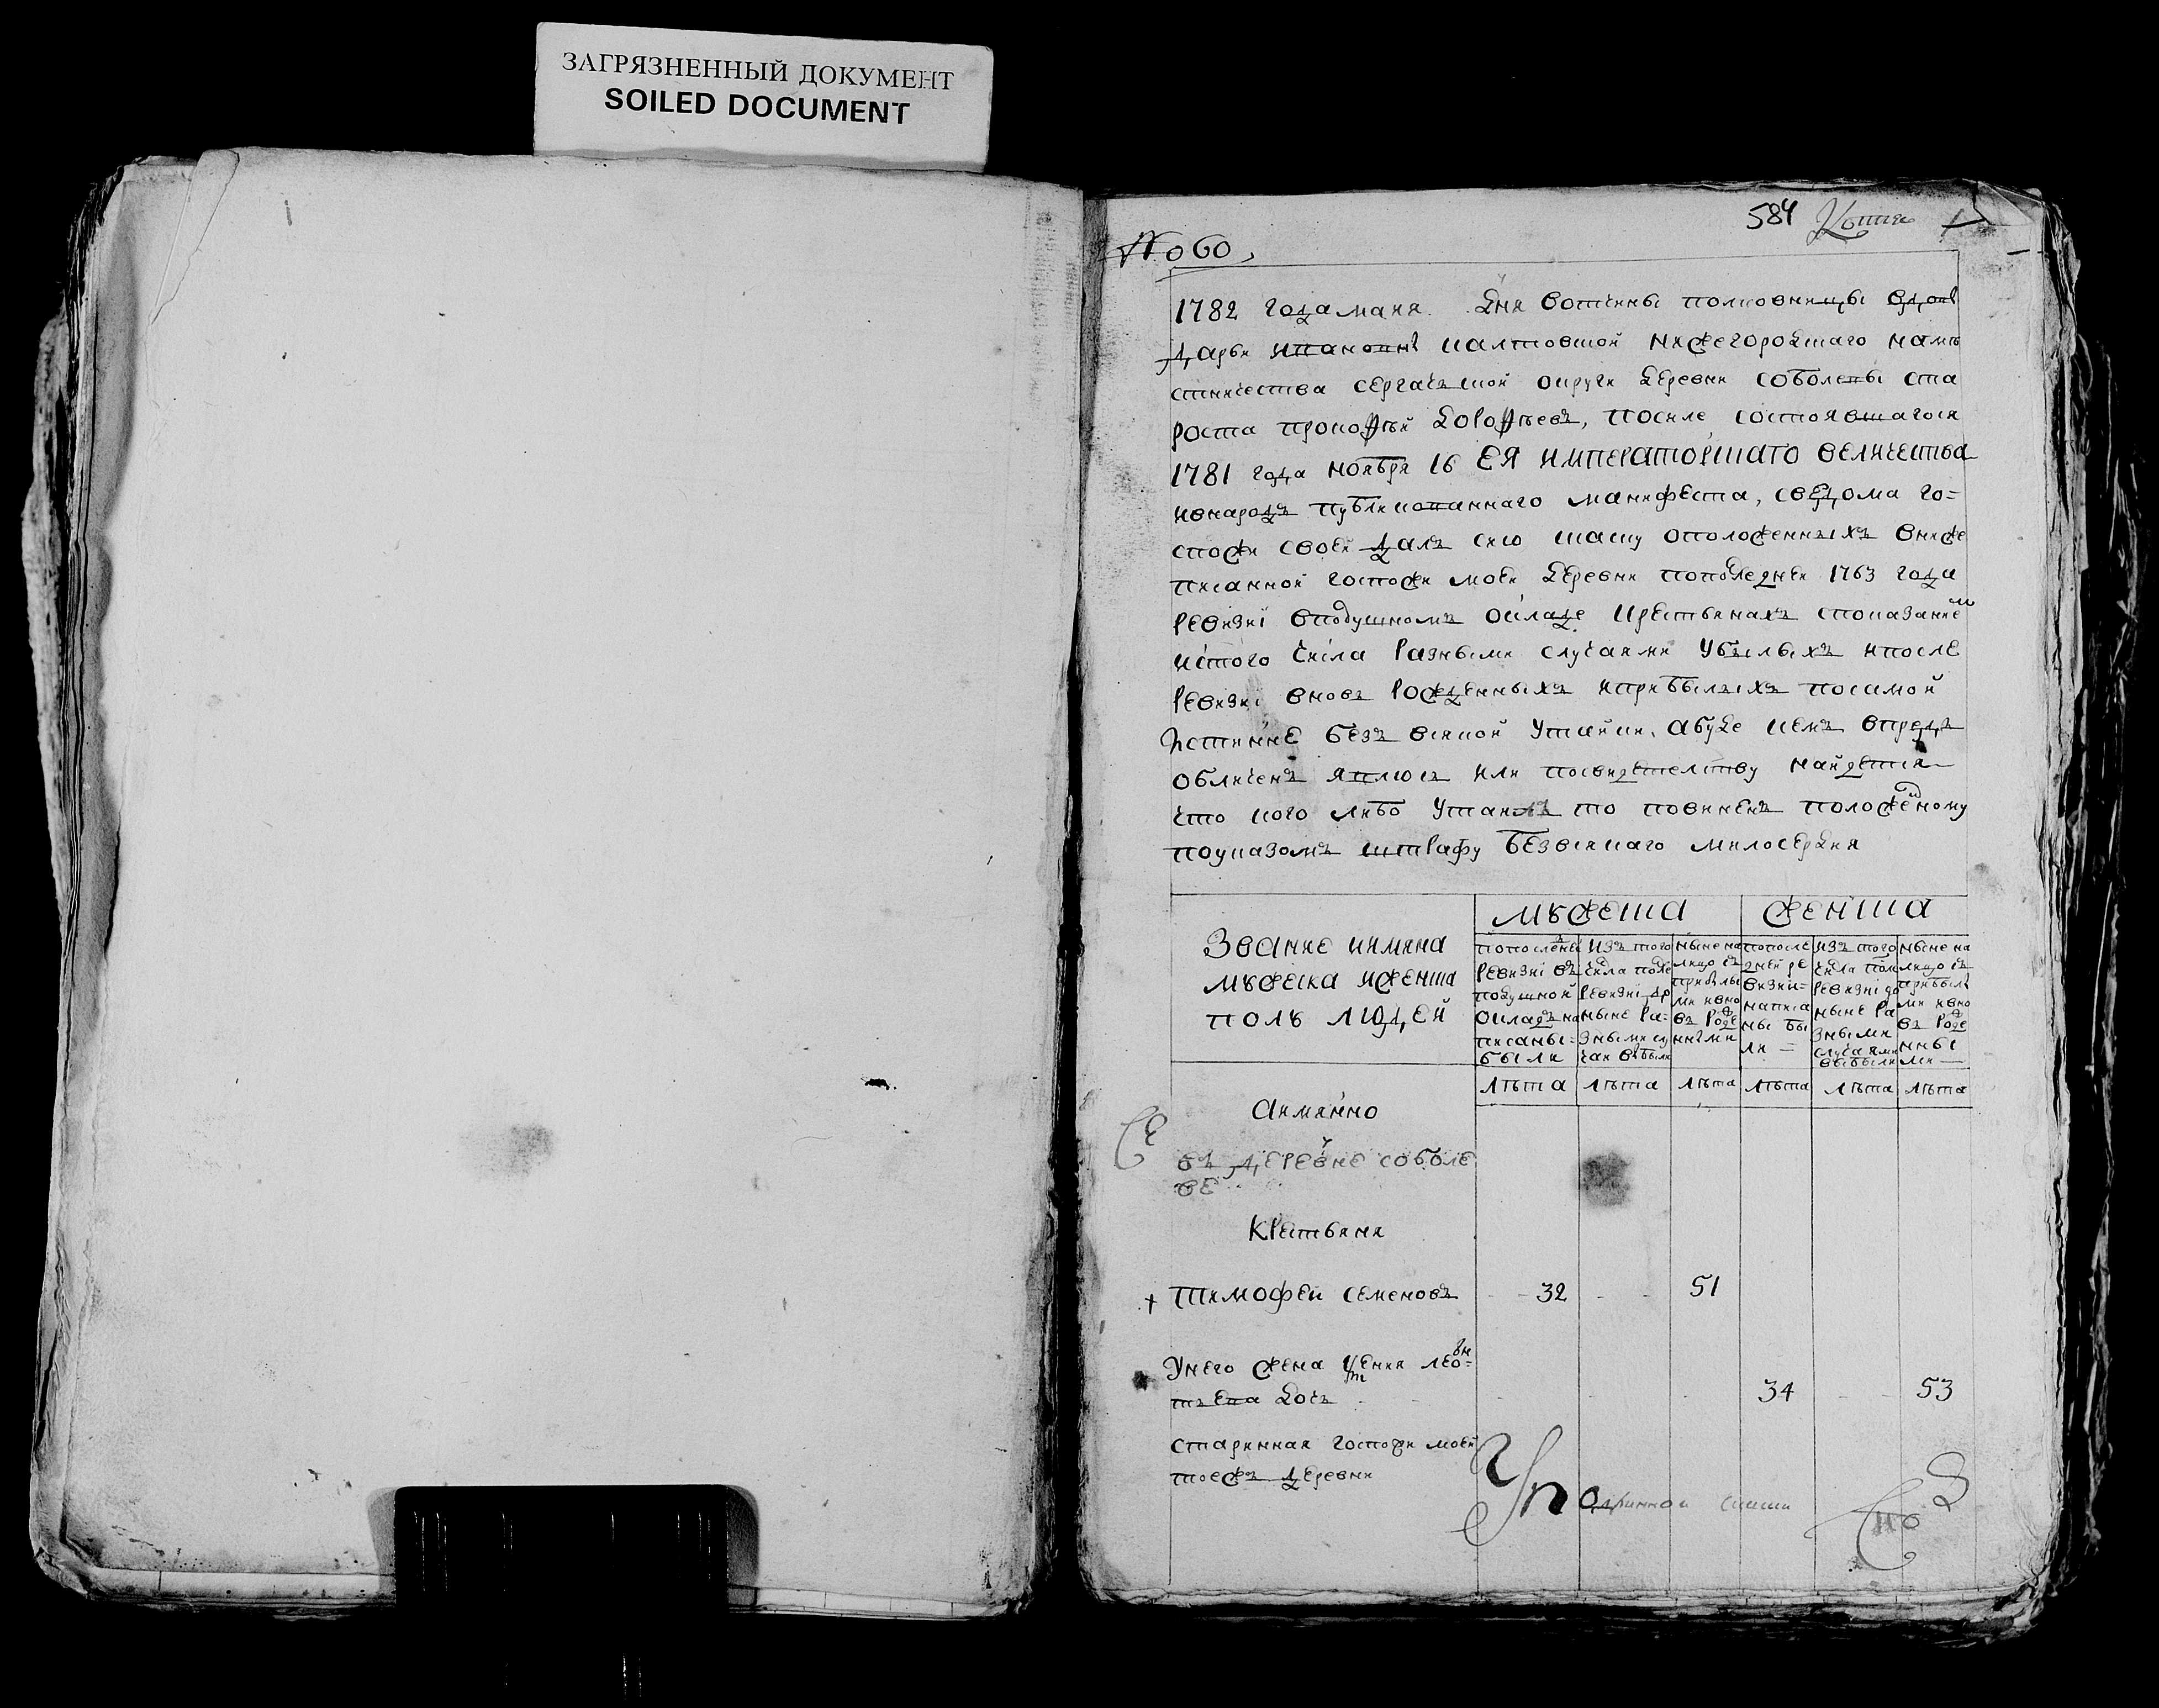 ЗАГРЯЗНЕННЫЙ ДОКУМЕНТ
SOILED DOCUMENT
584 Копия
№ 60,
1782 года маия Дня вотчины полковницы вдовы
Дарьи малтовской нижегородскаго наме
стничества сергачьской округи деревни соболевы ста
роста прокофьй дорофьевъ, после состоявшагося
1781 года ноября 16 ЕЯ ИМПЕРАТОРСКАГО величества
ивнародъ публикованнаго манифеста, сведома го=
спожи своей далъ сию скаску оположенныхъ внише
писанной госпожи моей деревни попоследней 1763 года
ревизиі вподушномъ окладе крестьянахъ споказание
истого числа разными случаями убылыхъ ипосле
ревизиі вновь рожденныхъ иприбылыхъ посамой
истинне безъ всякой утайки, абуде кемъ впредь
обличенъ явлюсь или посвидетелству найдетця
что кого либо утаилъ то повиненъ положеному
поуказомъ штрафу безвсякаго милосердия
мужеска
женска
Звание иимяна
мужеска иженска
полъ людей
попоследней ревизиі въ подушной окладъ написаны= были
изъ того числа после ревизиі до ныне разными случаи выбыли
ныне на лицо съ прибылыми ивновь рожденными
попоследней ревизии= написаны были —
изъ того числа после ревизиі до ныне разными случаями выбыли
ныне на лицо съ прибылыми ивновь рожденными —
лѣта лѣта лѣта лѣта лѣта лѣта
аимянно
въ деревне соболе
ве
Крестьяня
+ Тимофей семеновъ 32 51
Унего жена
дочь 34 53
старинная госпожи моей
тоежъ деревни